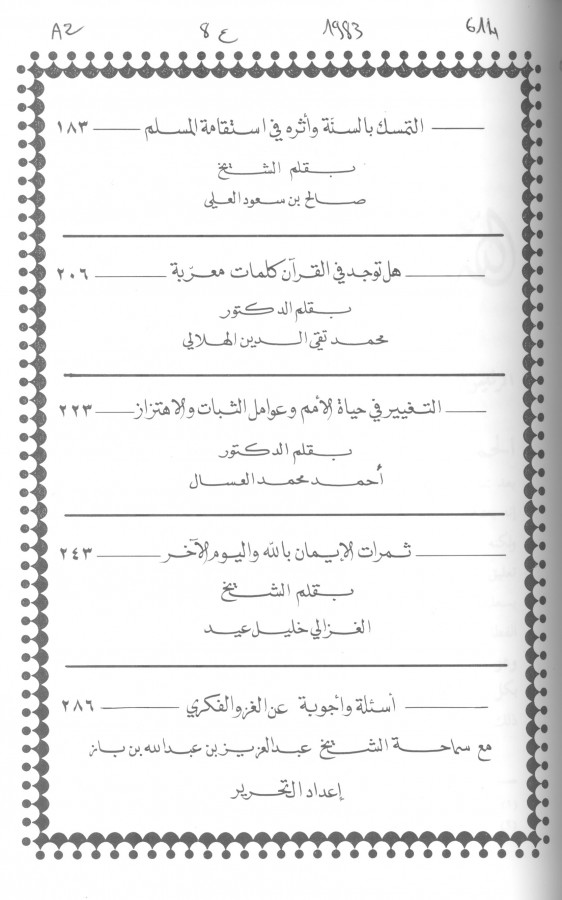 A2 8 ع 1983 614
التمسك بالسنة وأثره في استقامة المسلم ١٨٣
بقلم الشيخ
صالح بن سعود العلي
هل توجد في القرآن كلمات معرّبة ٢٠٦
بقلم الدكتور
محمد تقي الدين الهلالي
التغيير في حياة الأمم وعوامل الثبات والاهتزاز ٢٢٣
بقلم الدكتور
أحمد محمد العسال
ثمرات الإيمان بالله واليوم الآخر ٢٤٣
بقلم الشيخ
الغزالي خليل عيد
أسئلة وأجوبة عن الغزو الفكري ٢٨٦
مع سماحة الشيخ عبدالعزيز بن عبدالله بن باز
إعداد التحرير